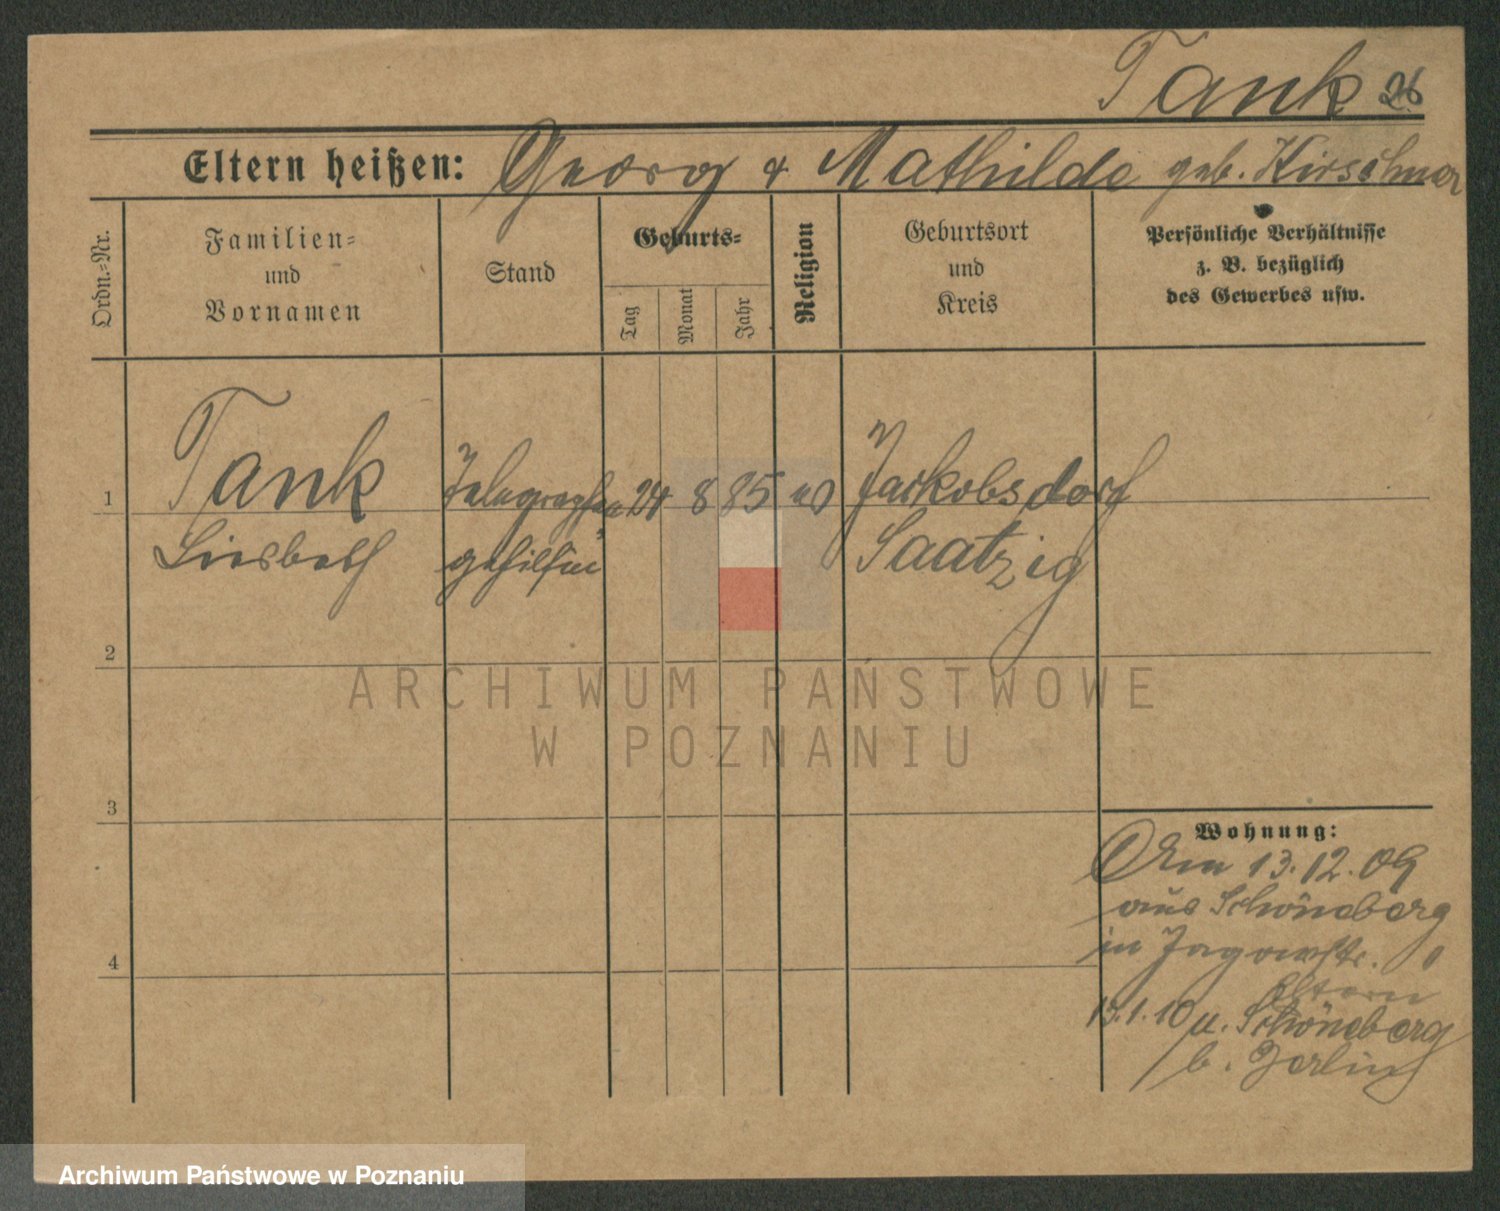 Tank 26
Eltern heißen: Georg & Mathilde geb. Kirschner
Ordn.=Nr.
Familien=
und
Vornamen
Stand
Geburts=
Tag
Monat
Jahr
Religion
Geburtsort
und
Kreis
Persönliche Verhältnisse
z. B. bezüglich
des Gewerbes usw.
1
Tank
Liesbeth
Telegraphen
gehilfin
24 8 85 ev
Jackobsdorf
Saatzig
2
3
4
Wohnung:
Am 13.12.09
aus Schöneberg
in Jagowstr.
Eltern
13.1.10 n. Schöneberg
b. Berlin
ARCHIWUM PAŃSTWOWE
W POZNANIU
Archiwum Państwowe w Poznaniu